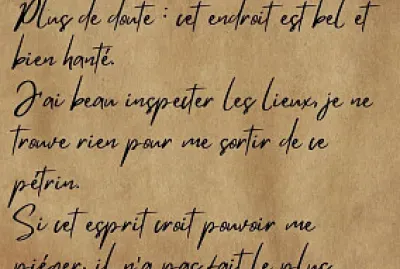 Plus de doute : cet endroit est bel et
bien hanté.
J'ai beau inspecter les lieux, je ne
trouve rien pour me sortir de ce
pétrin.
Si cet esprit croit pouvoir me
piéger, il n'a pas fait le plus